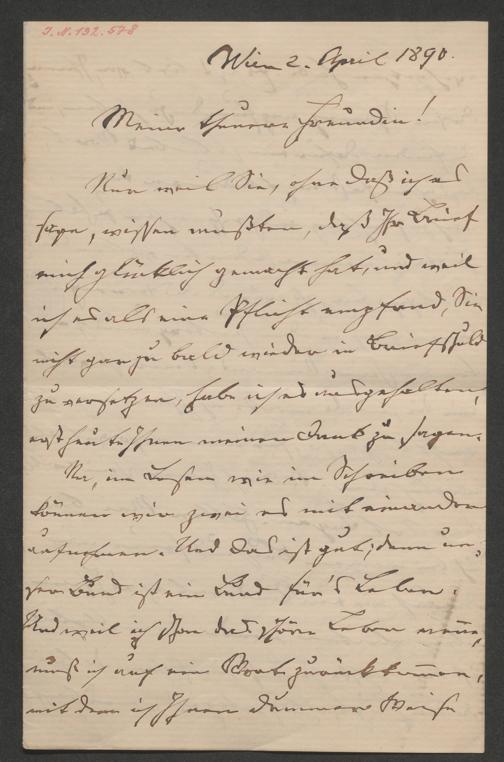 I. N. 192.578
Wien 2. April 1890.
Meine theuere Freundin!
Nur weil Sie, ohne daß ich es
sage, wissen mußten, daß Ihr Brief
mich glücklich gemacht hat, und weil
ich es als eine Pflicht empfand, Sie
nicht gar zu bald wieder in Briefschuld
zu versetzen, habe ich es ausgehalten,
erst heute Ihnen meinen Dank zu sagen.
Na, im Lesen wie im Schreiben
können wir zwei es mit einander
aufnehmen. Und das ist gut; denn un-
ser Bund ist ein Bund für's Leben.
Und weil ich schon das schöne Leben nenne,
muß ich auf ein Wort zurückkommen,
mit dem ich Ihnen dummer Weise